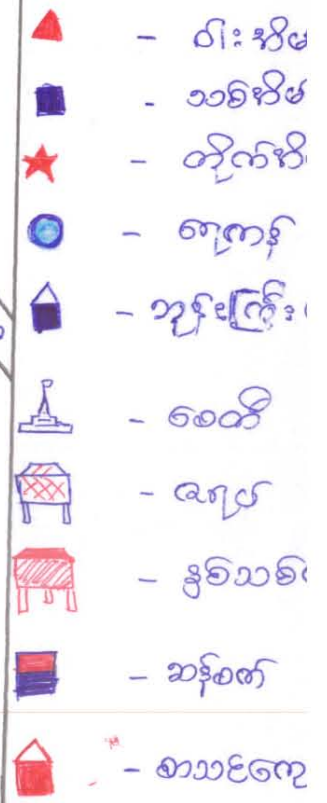 - ဝါးအိမ်
- သစ်အိမ်
- တိုက်အိ
- ရေကန်
- ဘုန်းကြီး
- စေတီ
- ဇရပ်
- နှစ်သစ်
- ဆန်စက်
- စာသင်ကျေ